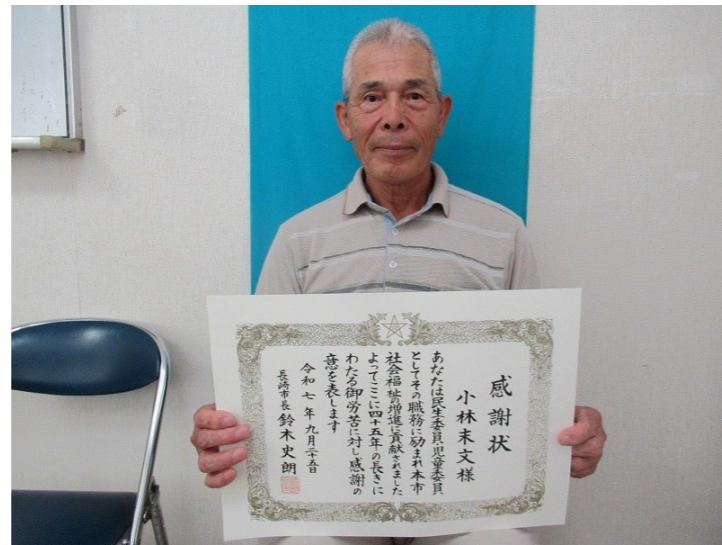 感謝状
小林末文様
あなたは民生委員・児童委員
としてその職務に励まれ本市
社会福祉の増進に貢献されました
よってここに四十五年の長きに
わたる御労苦に対し感謝の
意を表します
令和七年九月二十五日
長崎市長 鈴木史朗